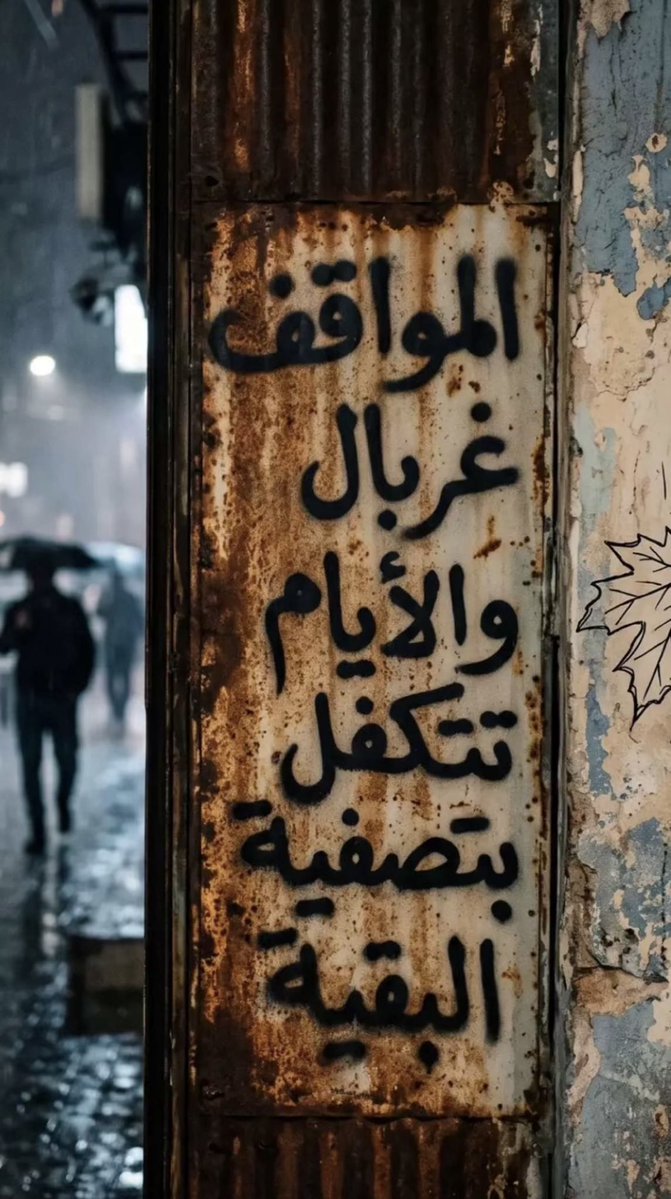 المواقف
غربال
والأيام
تتكفل
بتصفية
البقية